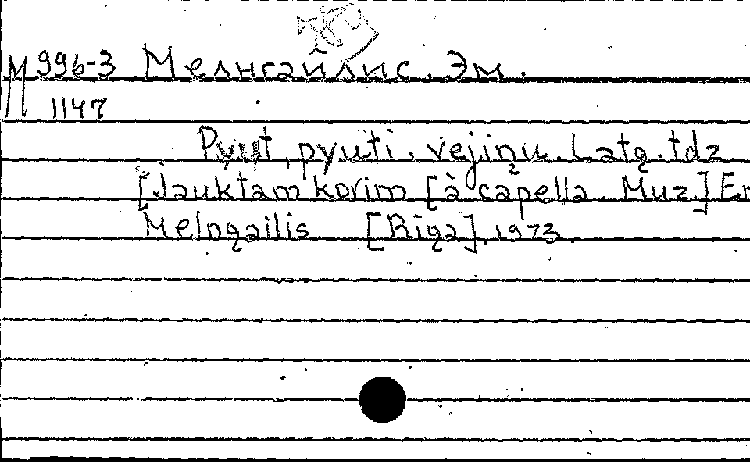 М 996-3 Мелнгайлис, Эм.
1147
Pyut, pyuti, vejiņu. Latg. tdz
[Jauktam korim [à capella. Muz.] Em
Melngailis [Rīga], 1973